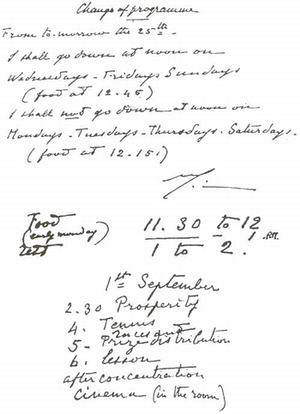 Change of programme
From to-morrow the 25th -
I shall go down at noon on
Wednesdays - Fridays Sundays
(food at 12.45)
I shall not go down at noon on
Mondays - Tuesdays - Thursdays. Saturdays.
(food at 12.15.)
Food 11.30 to 12
(early monday) 1 P.M.
1 to 2.
1st September
2.30 Prosperity
4. Tennis
5 - Prize distribution
6. lesson
after concentration
cinema (in the room)